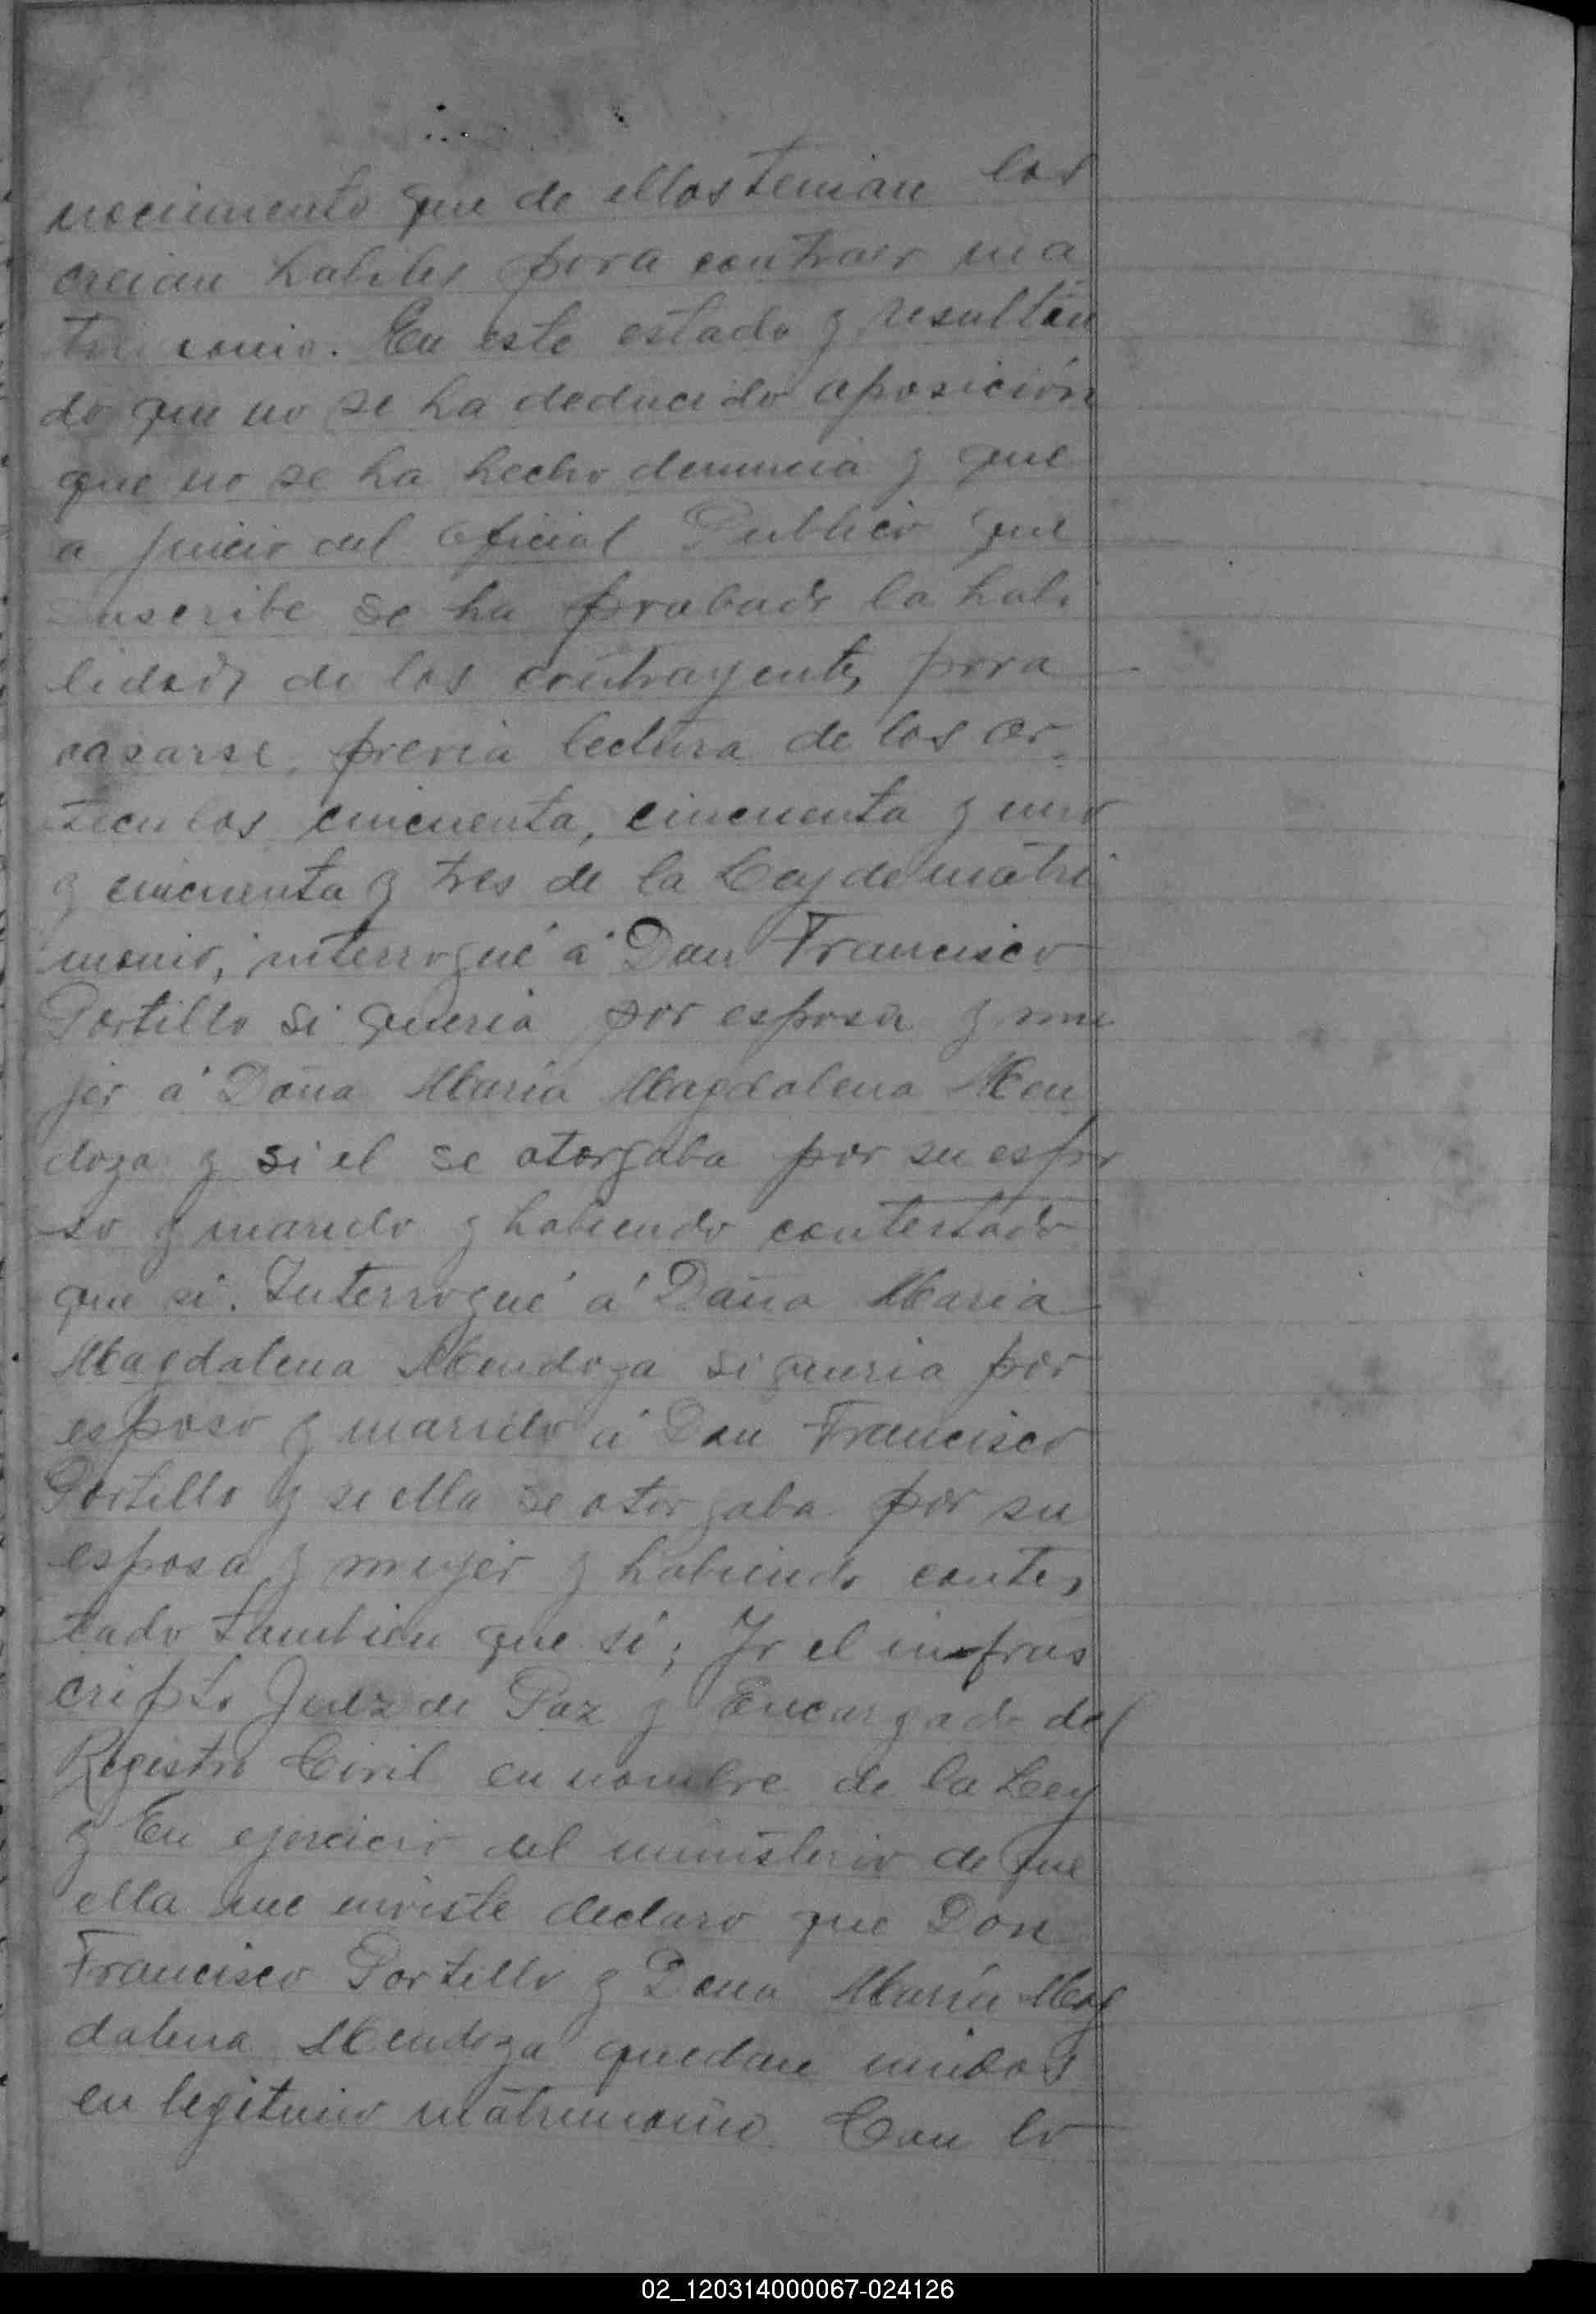 nocimiento que de ellos tenian los
creian habiles para contraer ma
trimonio. En este estado y resultan
do que no se ha deducido oposición
que no se ha hecho denuncia y que
a juicio del oficial Publico que
suscribe se ha probado la habi
lidad de los contrayentes para
casarse, previa lectura de los ar=
ticulos cincuenta, cincuenta y uno
y cincuenta y tres de la Ley de matri
monio, interrogué á Don Francisco
Portillo si queria por esposa y mu
jer á Doña Maria Magdalena Men
doza y si el se otorgaba por su espo
so y marido y habiendo contestado
que si. Interrogué á Doña Maria
Magdalena Mendoza si queria por
esposo y marido á Don Francisco
Portillo y si ella se otorgaba por su
esposa y mujer y habiendo contes
tado tambien que si; Yo el infras
cripto Juez de Paz y Encargado del
Registro Civil en nombre de la Ley
y En ejercicio del ministerio de que
ella me inviste declaro que Don
Francisco Portillo y Dona María Mag
dalena Mendoza quedan unidos
en legitimo matrimonio. Con lo
02_120314000067-024126